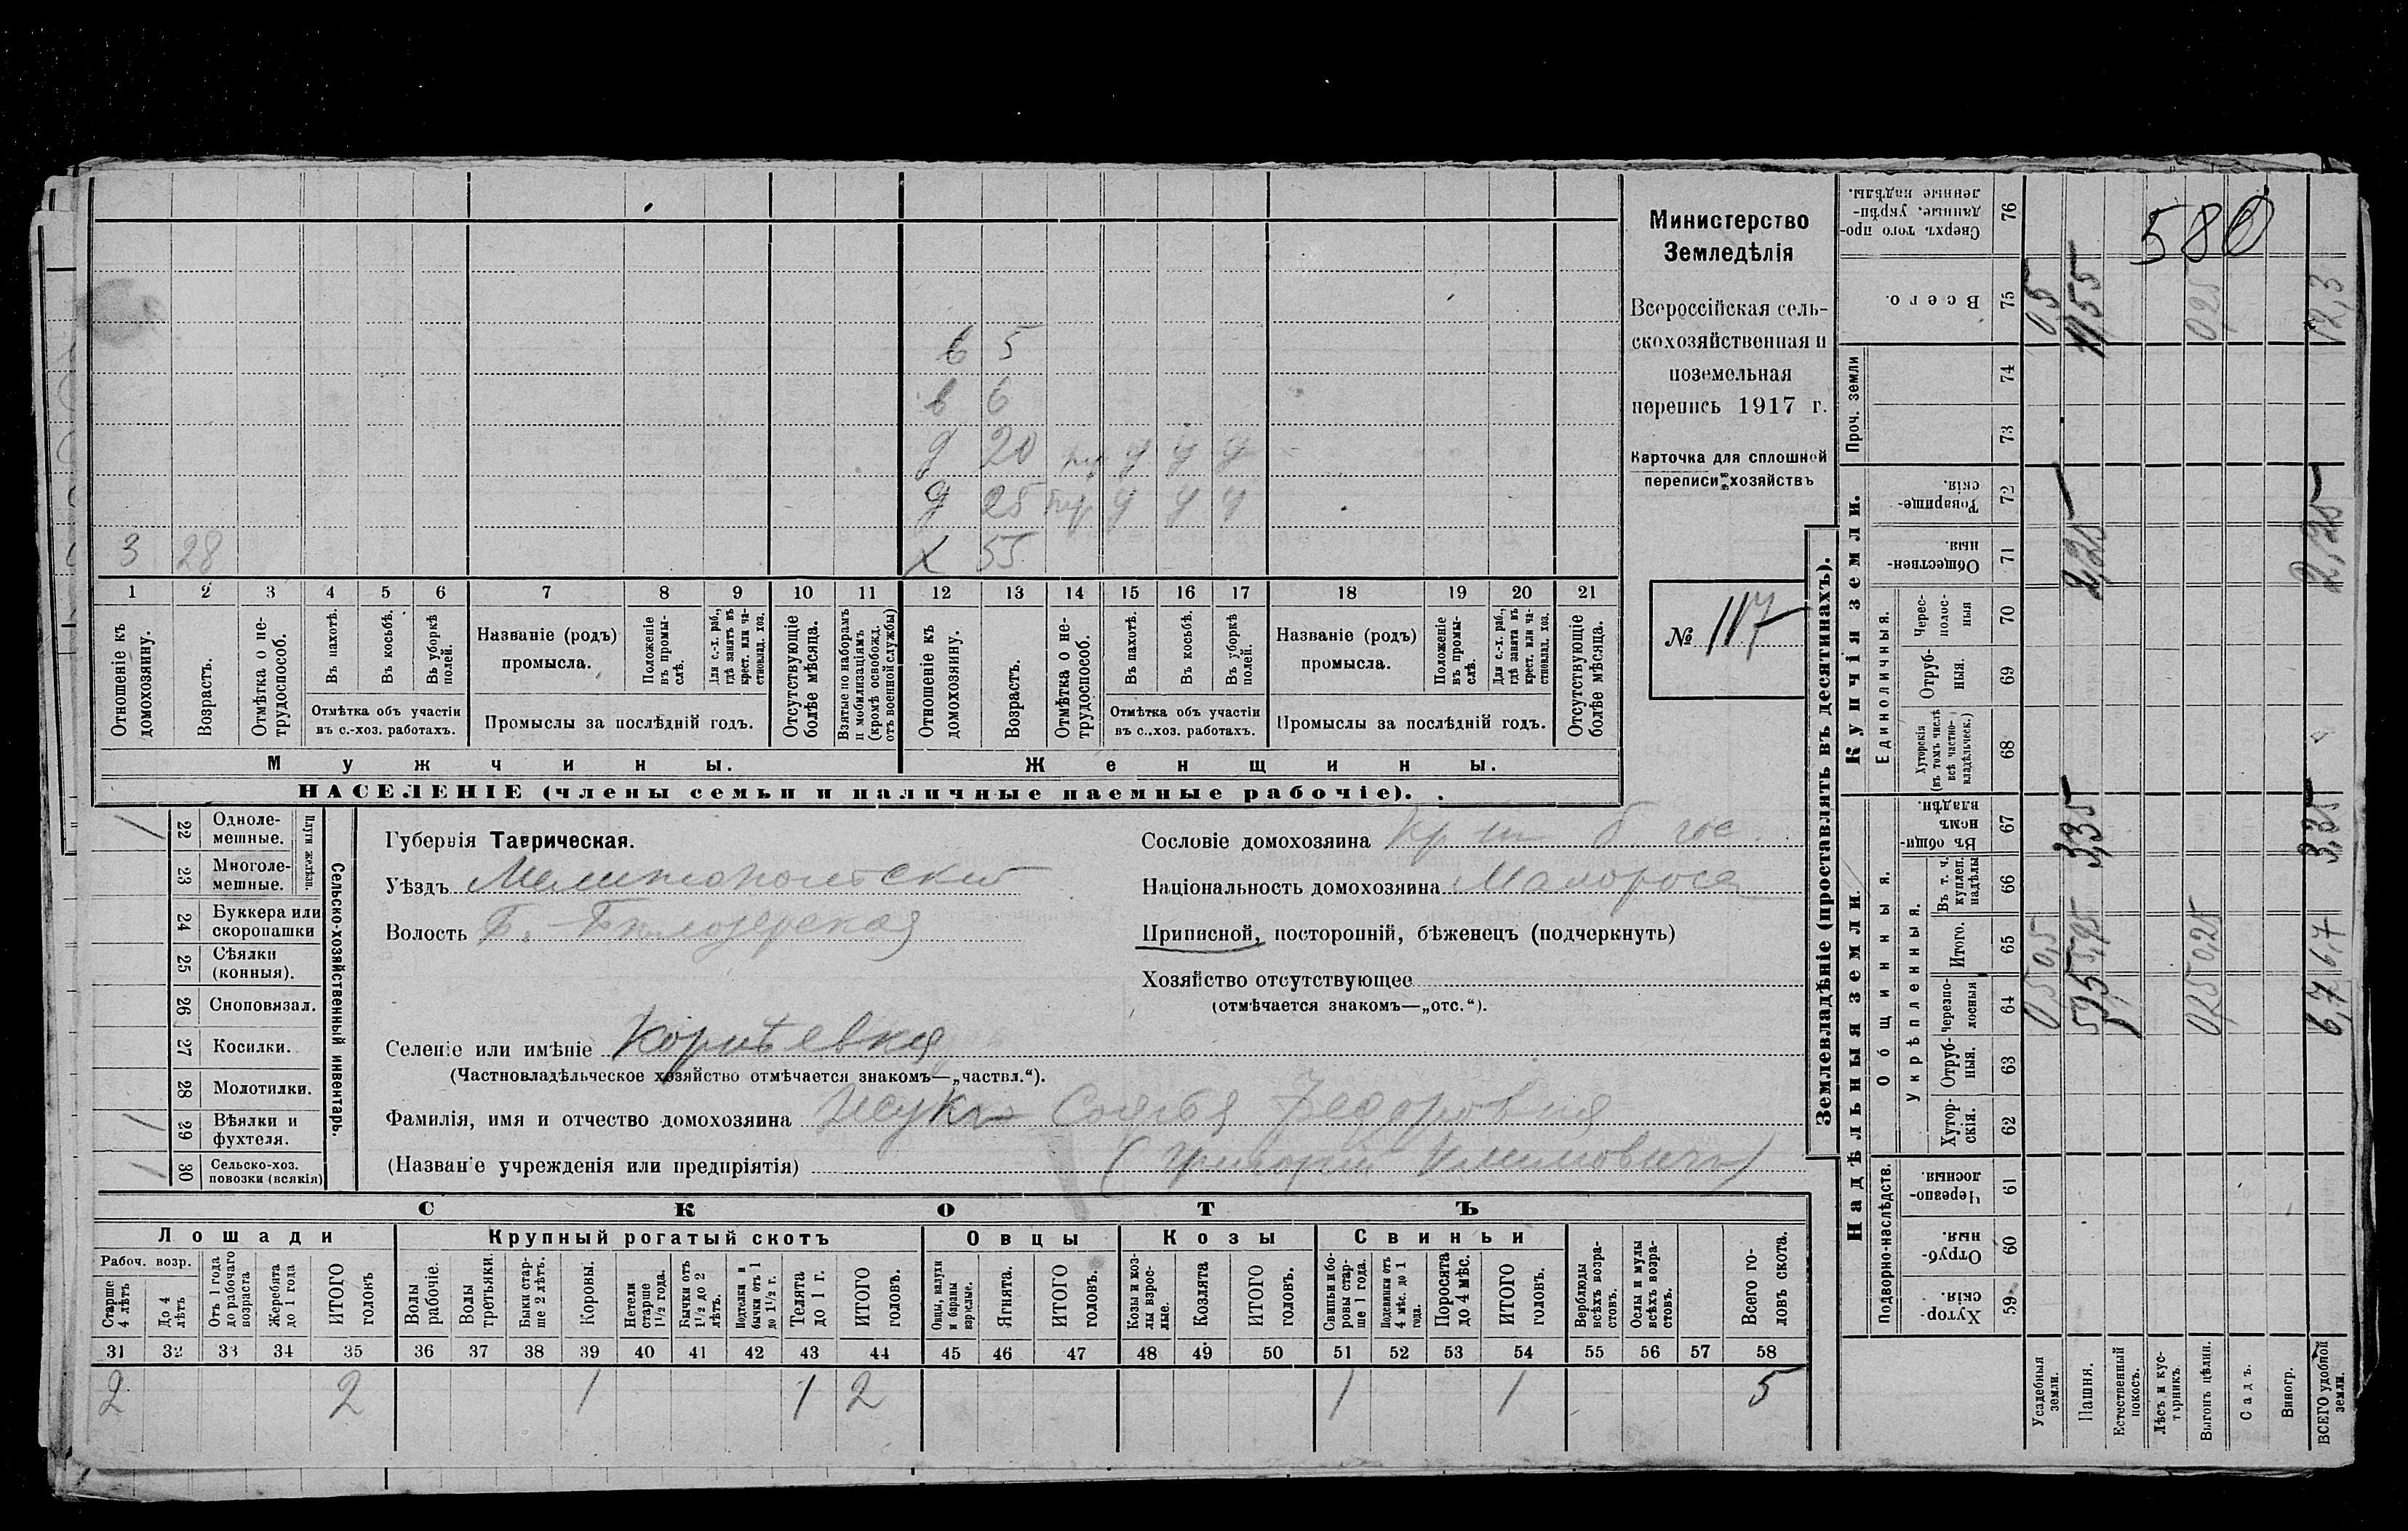 Министерство
Земледѣлія
Всероссійская сель-
скохозяйственная и
поземельная
перепись 1917 г.
Карточка для сплошной
переписи хозяйствъ
№ 117
580
в 5
в 6
д 20 д д д
д 25 д д д
3 28 х 55
1 2 3 4 5 6 7 8 9 10 11 12 13 14 15 16 17 18 19 20 21
Отношеніе къ домохозяину.
Возрастъ.
Отмѣтка о не-трудоспособ.
Въ пахотѣ.
Въ косьбѣ.
Въ уборкѣ полей.
Отмѣтка объ участіи въ с.-хоз. работахъ.
Названіе (родъ) промысла.
Положеніе въ промы-слѣ.
Для с.-х. раб., гдѣ занятъ въ крест. или ча-стновлад. хоз.
Промыслы за послѣдній годъ.
Отсутствующіе болѣе мѣсяца.
Взятые по наборамъ и мобилизаціямъ (кромѣ освобожд. отъ военной службы)
Отношеніе къ домохозяину.
Возрастъ.
Отмѣтка о не-трудоспособ.
Въ пахотѣ.
Въ косьбѣ.
Въ уборкѣ полей.
Отмѣтка объ участіи въ с.-хоз. работахъ.
Названіе (родъ) промысла.
Положеніе въ промы-слѣ.
Для с.-х. раб., гдѣ занята въ крест. или ча-стновлад. хоз.
Промыслы за послѣдній годъ.
Отсутствующіе болѣе мѣсяца.
Мужчины. Женщины.
НАСЕЛЕНІЕ (члены семьи и наличные наемные рабочіе).
Сельско-хозяйственный инвентарь.
Плуги желѣзн.
22 Одноле-мешные. 1
23 Многоле-мешные.
24 Буккера или скоропашки
25 Сѣялки (конныя).
26 Сноповязал.
27 Косилки.
28 Молотилки.
29 Вѣялки и фухтеля. 1
30 Сельско-хоз. повозки (всякія) 1
Губернія Таврическая.
Уѣздъ Мелитопольский
Волость Б. Бѣлозерская
Сословіе домохозяина Кр
Національность домохозяина Малоросс
Приписной, посторонній, бѣженецъ (подчеркнуть)
Хозяйство отсутствующее
(отмѣчается знакомъ—„отс.“).
Селеніе или имѣніе Корнѣевка
(Частновладѣльческое хозяйство отмѣчается знакомъ—„частвл.“).
Фамилія, имя и отчество домохозяина Жукъ Софья Федоровна
(Названіе учрежденія или предпріятія) (Григорій Климовичъ)
СКОТЪ
Лошади Крупный рогатый скотъ Овцы Козы Свиньи
Рабоч. возр.
Старше 4 лѣтъ
До 4 лѣтъ
Отъ 1 года до рабочаго возраста
Жеребята до 1 года
ИТОГО головъ
Волы рабочіе.
Волы третьяки.
Быки стар-ше 2 лѣтъ.
Коровы.
Нетели старше 1½ года.
Бычки отъ 1½ до 2 лѣтъ.
Подтелки и бычки отъ 1 до 1½ г.
Телята до 1 г.
ИТОГО головъ.
Овцы, валухи и бараны взрослые.
Ягнята.
ИТОГО головъ.
Козы и коз-лы взрос-лые.
Козлята
ИТОГО головъ.
Свиньи и бо-ровы стар-ше 1 года.
Подсвинки отъ 4 мѣс. до 1 года.
Поросята до 4 мѣс.
ИТОГО головъ.
Верблюды всѣхъ возра-стовъ.
Ослы и мулы всѣхъ возра-стовъ.
Всего го-ловъ скота.
31 32 33 34 35 36 37 38 39 40 41 42 43 44 45 46 47 48 49 50 51 52 53 54 55 56 57 58
2 2 1 1 2 1 1 5
Землевладѣніе (проставлять въ десятинахъ).
Надѣльныя земли. Купчія земли. Проч. земли
Подворно-наслѣдств.
Общинныя.
Укрѣпленныя.
Единоличныя.
Хутор-скія. 59
Отруб-ныя. 60
Черезпо-лосныя. 61
Хутор-скія. 62
Отруб-ныя. 63
Черезпо-лосныя 64
Итого. 65
Въ т. ч. куплен. надѣлы 66
Въ общин-номъ владѣн. 67
Хуторскія (въ томъ числѣ всѣ частно-владѣльческ.) 68
Отруб-ныя. 69
Черес-полос-ныя 70
Обществен-ныя. 71
Товарище-скія. 72
73
74
Всего. 75
Сверхъ того про-данные, укрѣп-ленные надѣлы. 76
Усадебныя земли. 0,5 0,5 0,5
Пашня. 5,95 5,95 3,35 2,25 11,55
Естественный покосъ.
Лѣсъ и кус-тарникъ.
Выгонъ цѣлин. 0,25 0,25 0,25
Садъ.
Виногр.
ВСЕГО удобной земли. 6,7 6,7 3,35 2,25 12,3